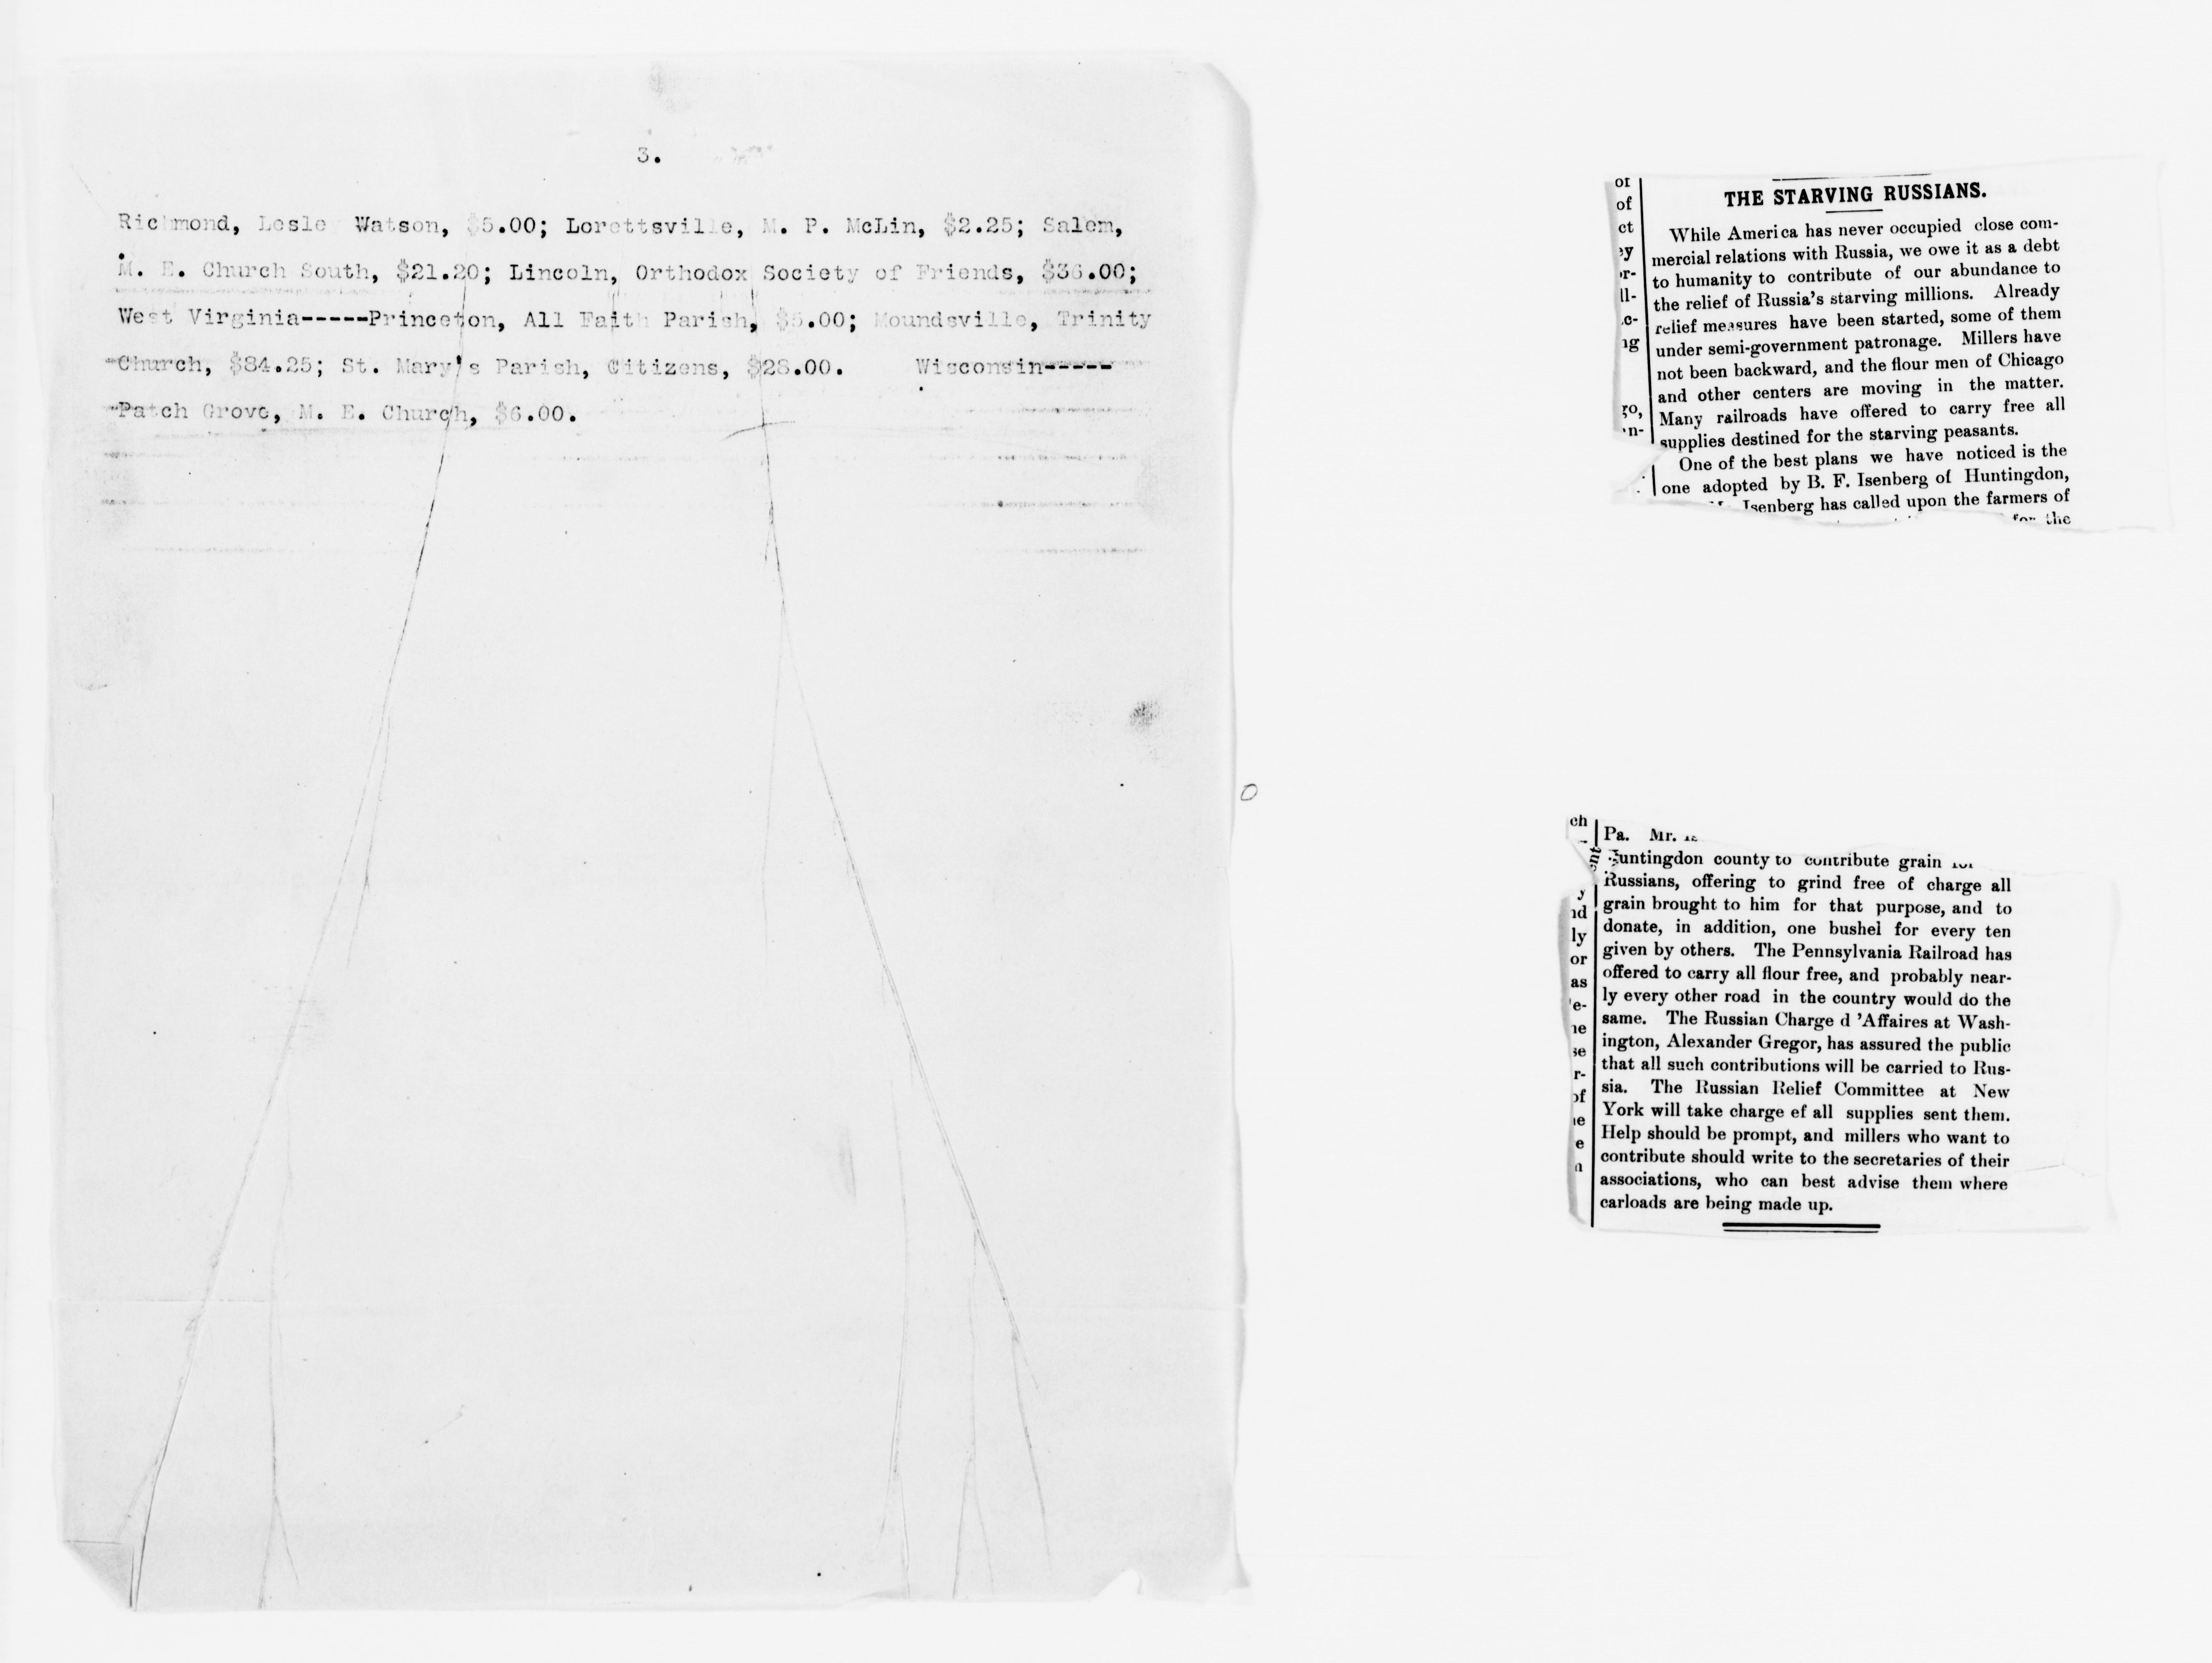 3.
Richmond, Lesle Watson, $5.00; Lorettsville, M. P. McLin, $2.25; Salem,
M. E. Church South, $21.20; Lincoln, Orthodox Society of Friends, $36.00;
West Virginia-----Princeton, All Faith Parish, $5.00; Moundsville, Trinity
Church, $84.25; St. Mary's Parish, Citizens, $28.00. Wisconsin-----
Patch Grove, M. E. Church, $6.00.
THE STARVING RUSSIANS.
While America has never occupied close com-
mercial relations with Russia, we owe it as a debt
to humanity to contribute of our abundance to
the relief of Russia's starving millions. Already
relief measures have been started, some of them
under semi-government patronage. Millers have
not been backward, and the flour men of Chicago
and other centers are moving in the matter.
Many railroads have offered to carry free all
supplies destined for the starving peasants.
One of the best plans we have noticed is the
one adopted by B. F. Isenberg of Huntingdon,
Isenberg has called upon the farmers of
for the
of
of
ct
ey
or-
ll-
c-
ng
go,
n-
Pa. Mr.
Huntingdon county to contribute grain for
Russians, offering to grind free of charge all
grain brought to him for that purpose, and to
donate, in addition, one bushel for every ten
given by others. The Pennsylvania Railroad has
offered to carry all flour free, and probably near-
ly every other road in the country would do the
same. The Russian Charge d 'Affaires at Wash-
ington, Alexander Gregor, has assured the public
that all such contributions will be carried to Rus-
sia. The Russian Relief Committee at New
York will take charge ef all supplies sent them.
Help should be prompt, and millers who want to
contribute should write to the secretaries of their
associations, who can best advise them where
carloads are being made up.
ch
nt
y
nd
ly
or
as
e-
ne
se
r-
of
ie
e
n